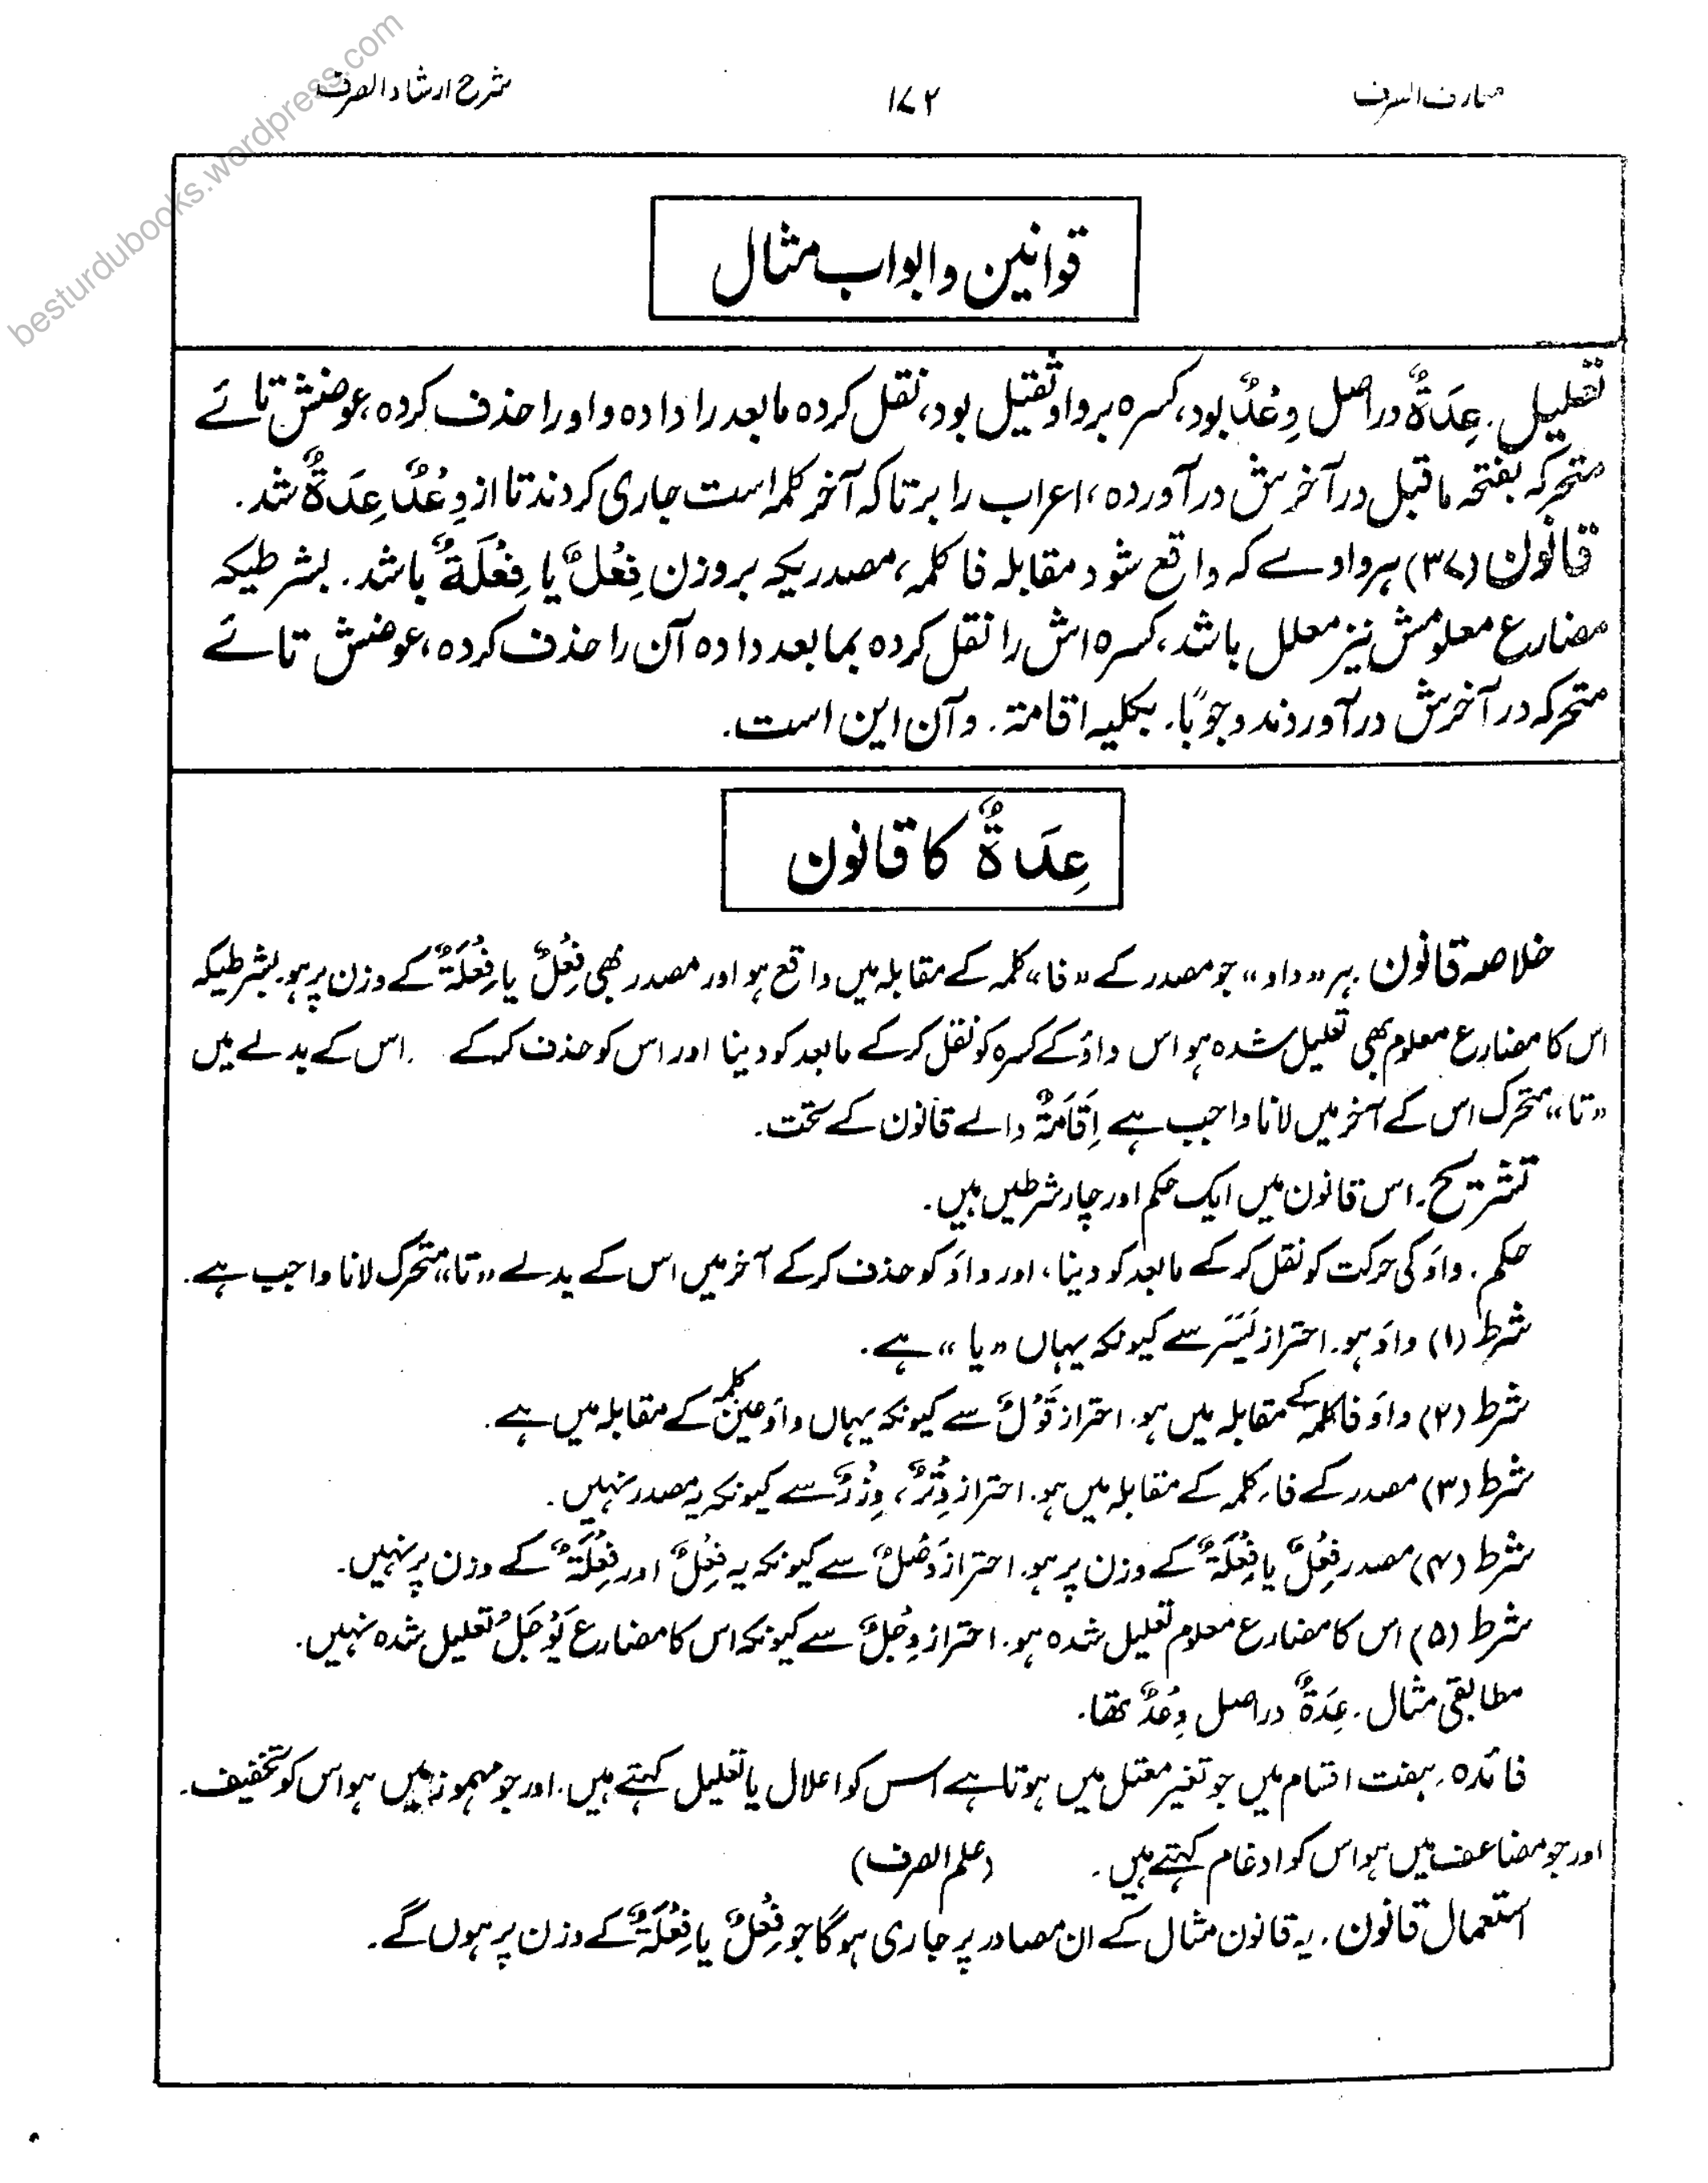 معارف الصرف
۱۷۲
شرح ارشاد الصرف
besturdubooks.wordpress.com
قوانین و ابواب مثال
تعلیل. عِدَةٌ دراصل وِعْدٌ بود، کسرہ بر واو ثقیل بود، نقل کردہ مابعد را دادہ واو را حذف کردہ، عوضش تائے
متحرکہ بفتحہ ماقبل در آخرش در آوردہ، اعراب را بر تا کہ آخر کلمہ است جاری کردند تا از وِعْدٌ عِدَةٌ شد.
قانون (۳۷) ہر واوے کہ واقع شود مقابلہ فا کلمہ، مصدریکہ بروزن فِعْلٌ یا فِعْلَةٌ باشد. بشرطیکہ
مضارع معلومش نیز معلل باشد، کسرہ اش را نقل کردہ بما بعد دادہ آن را حذف کردہ، عوضش تائے
متحرکہ در آخرش در آورند وجوبًا. بکلیہ اقامة. و آن این است.
عِدَةٌ کا قانون
خلاصہ قانون. ہر «واو» جو مصدر کے «فا» کلمہ کے مقابلہ میں واقع ہو اور مصدر بھی فِعْلٌ یا فِعْلَةٌ کے وزن پر ہو. بشرطیکہ
اس کا مضارع معلوم بھی تعلیل شدہ ہو اس واؤ کے کسرہ کو نقل کر کے مابعد کو دینا اور اس کو حذف کرکے . اس کے بدلے میں
«تا» متحرک اس کے آخر میں لانا واجب ہے اِقَامَةٌ والے قانون کے تحت.
تشریح. اس قانون میں ایک حکم اور چار شرطیں ہیں.
حکم. واؤ کی حرکت کو نقل کر کے مابعد کو دینا، اور واؤ کو حذف کر کے آخر میں اس کے بدلے «تا» متحرک لانا واجب ہے.
شرط (۱) واؤ ہو. احتراز یَسَرَ سے کیونکہ یہاں «یا» ہے.
شرط (۲) واؤ فا کلمہ کے مقابلہ میں ہو. احتراز قَوْلٌ سے کیونکہ یہاں واؤ عین کلمہ کے مقابلہ میں ہے.
شرط (۳) مصدر کے فاء کلمہ کے مقابلہ میں ہو. احتراز وِتْرٌ، وِزْرٌ سے کیونکہ یہ مصدر نہیں.
شرط (۴) مصدر فِعْلٌ یا فِعْلَةٌ کے وزن پر ہو. احتراز وَصْلٌ سے کیونکہ یہ فِعْلٌ اور فِعْلَةٌ کے وزن پر نہیں.
شرط (۵) اس کا مضارع معلوم تعلیل شدہ ہو. احتراز وِجْلٌ سے کیونکہ اس کا مضارع یَوْجَلُ تعلیل شدہ نہیں.
مطابقی مثال. عِدَةٌ دراصل وِعْدٌ تھا.
فائدہ. ہفت اقسام میں جو تغیر معتل میں ہوتا ہے اس کو اعلال یا تعلیل کہتے ہیں. اور جو مہموز میں ہو اس کو تخفیف.
اور جو مضاعف میں ہو اس کو ادغام کہتے ہیں. (علم الصرف)
استعمال قانون. یہ قانون مثال کے ان مصادر پر جاری ہوگا جو فِعْلٌ یا فِعْلَةٌ کے وزن پر ہوں گے.